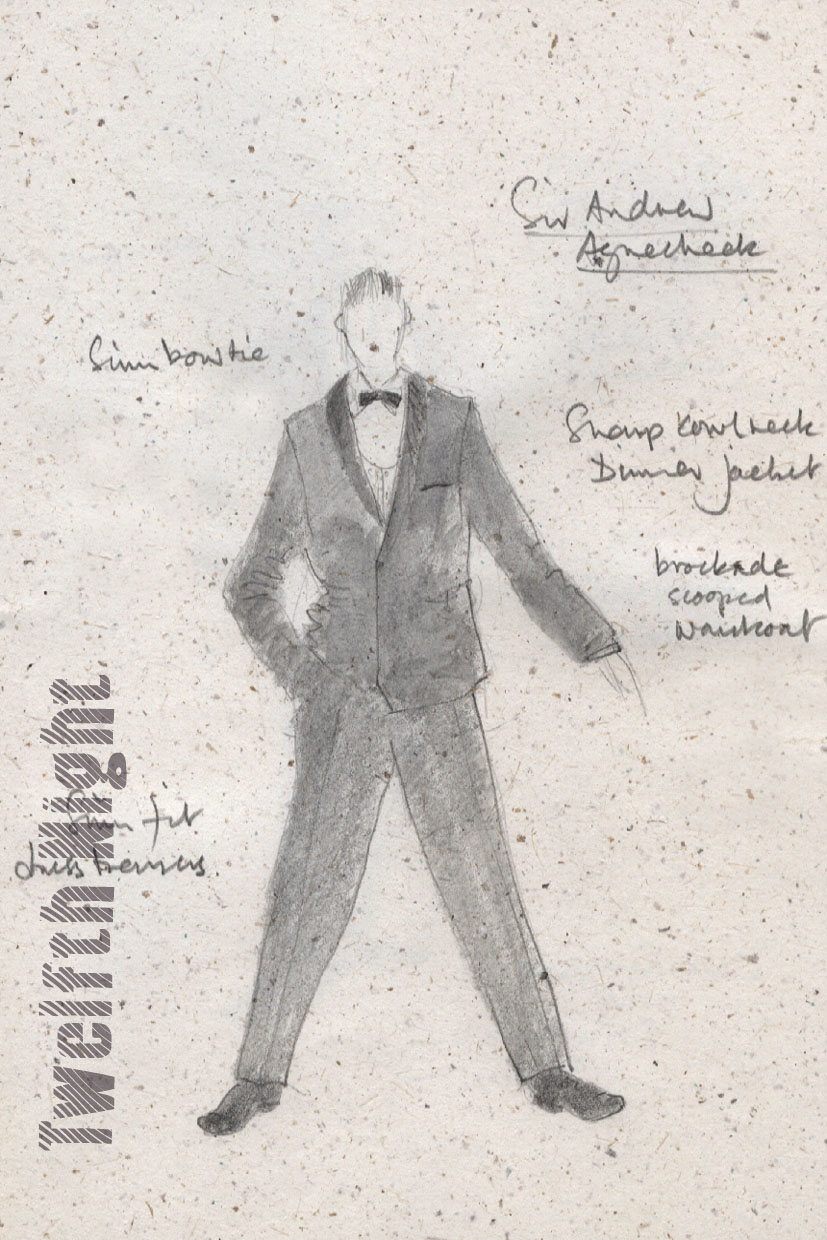 Sir Andrew
Aguecheek
Slim bow tie
Sharp Kowl neck
Dinner jacket
brockade
scooped
waistcoat
Slim fit
dress trousers.
Twelfth Night